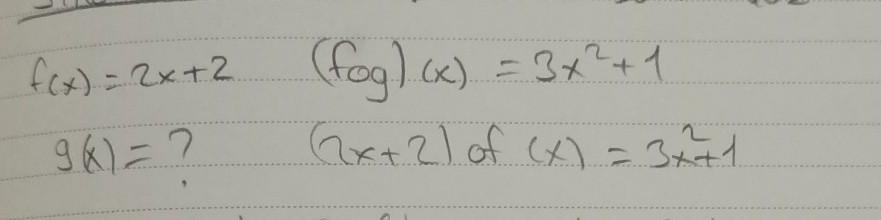 f(x) = 2x+2 (fog) (x) = 3x²+1
g(x) = ? (2x+2) of (x) = 3x²+1